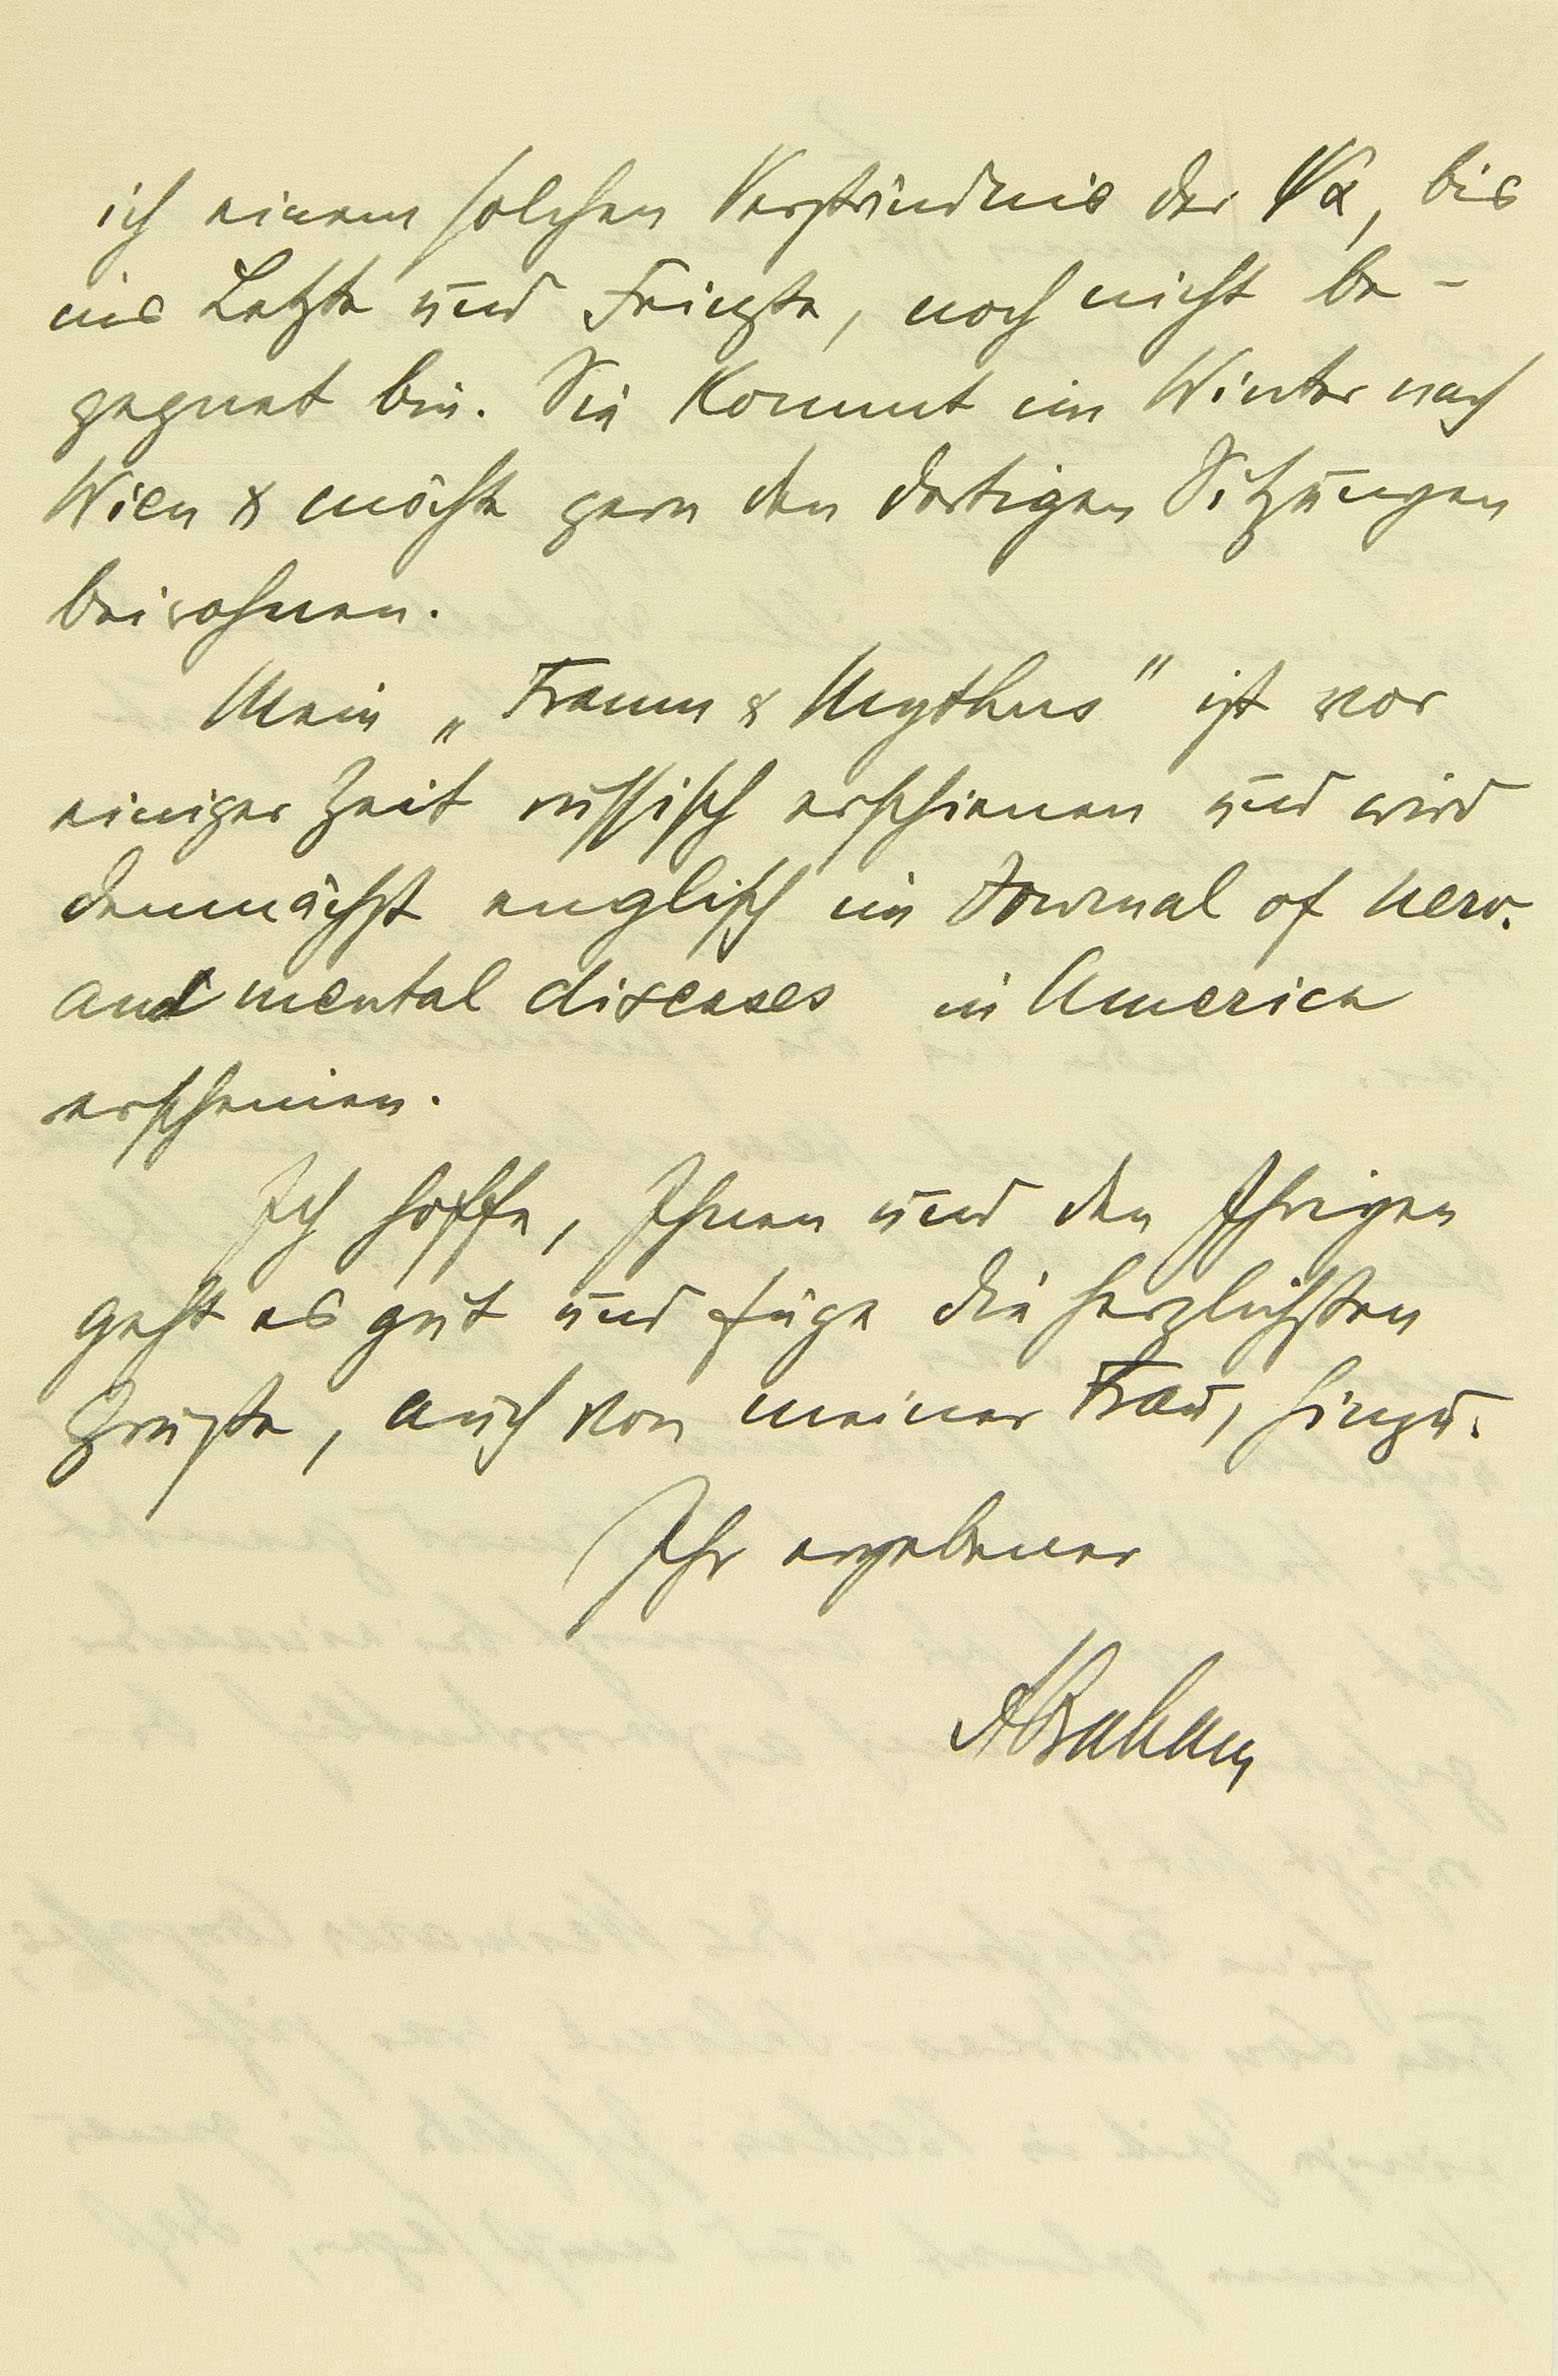 ich einem solchen Verständnis der ΨΑ, bis
ins Letzte und Feinste, noch nicht be-
gegnet bin. Sie kommt im Winter nach
Wien & möchte gern den dortigen Sitzungen
beiwohnen.
Mein „Traum & Mythus" ist vor
einiger Zeit russisch erschienen und wird
demnächst englisch im Journal of nerv.
and mental diseases in America
erscheinen.
Ich hoffe, Ihnen und den Ihrigen
geht es gut und füge die herzlichsten
Grüße, auch von meiner Frau, hinzu.
Ihr ergebener
Abraham